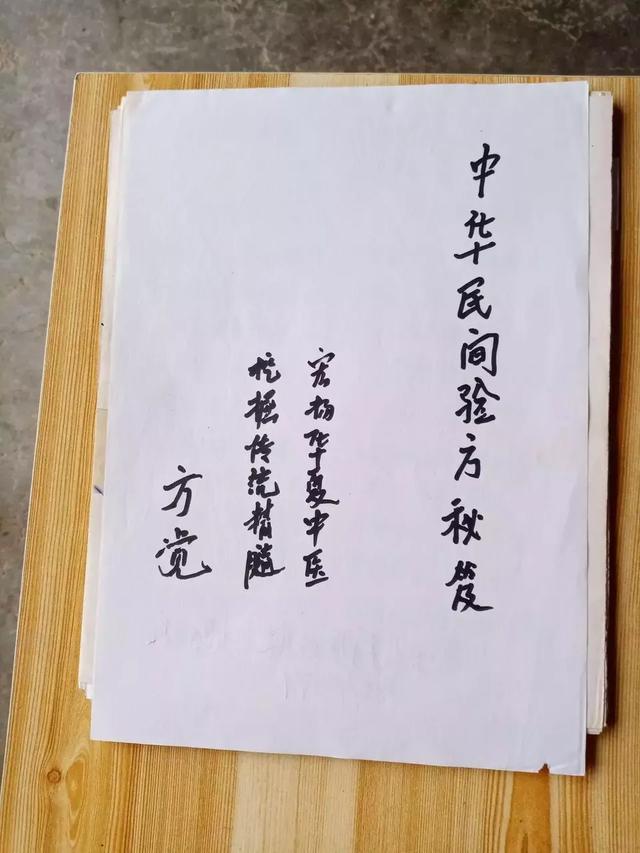 中华民间验方秘笈
宏扬华夏中医
挖掘传统精髓
方觉